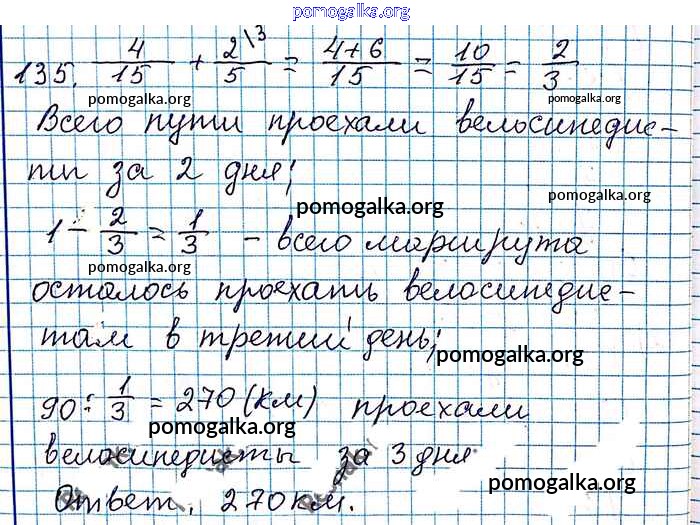 pomogalka.org
135. 4/15 + 2\3/5 = 4+6/15 = 10/15 = 2/3
pomogalka.org pomogalka.org
Всего пути проехали велосипедис-
ты за 2 дня;
pomogalka.org pomogalka.org
1 - 2/3 = 1/3 - всего маршрута
pomogalka.org
осталось проехать велосипедис-
там в третий день;
pomogalka.org
90 : 1/3 = 270 (км) проехали
pomogalka.org
велосипедисты за 3 дня.
pomogalka.org
Ответ. 270 км.